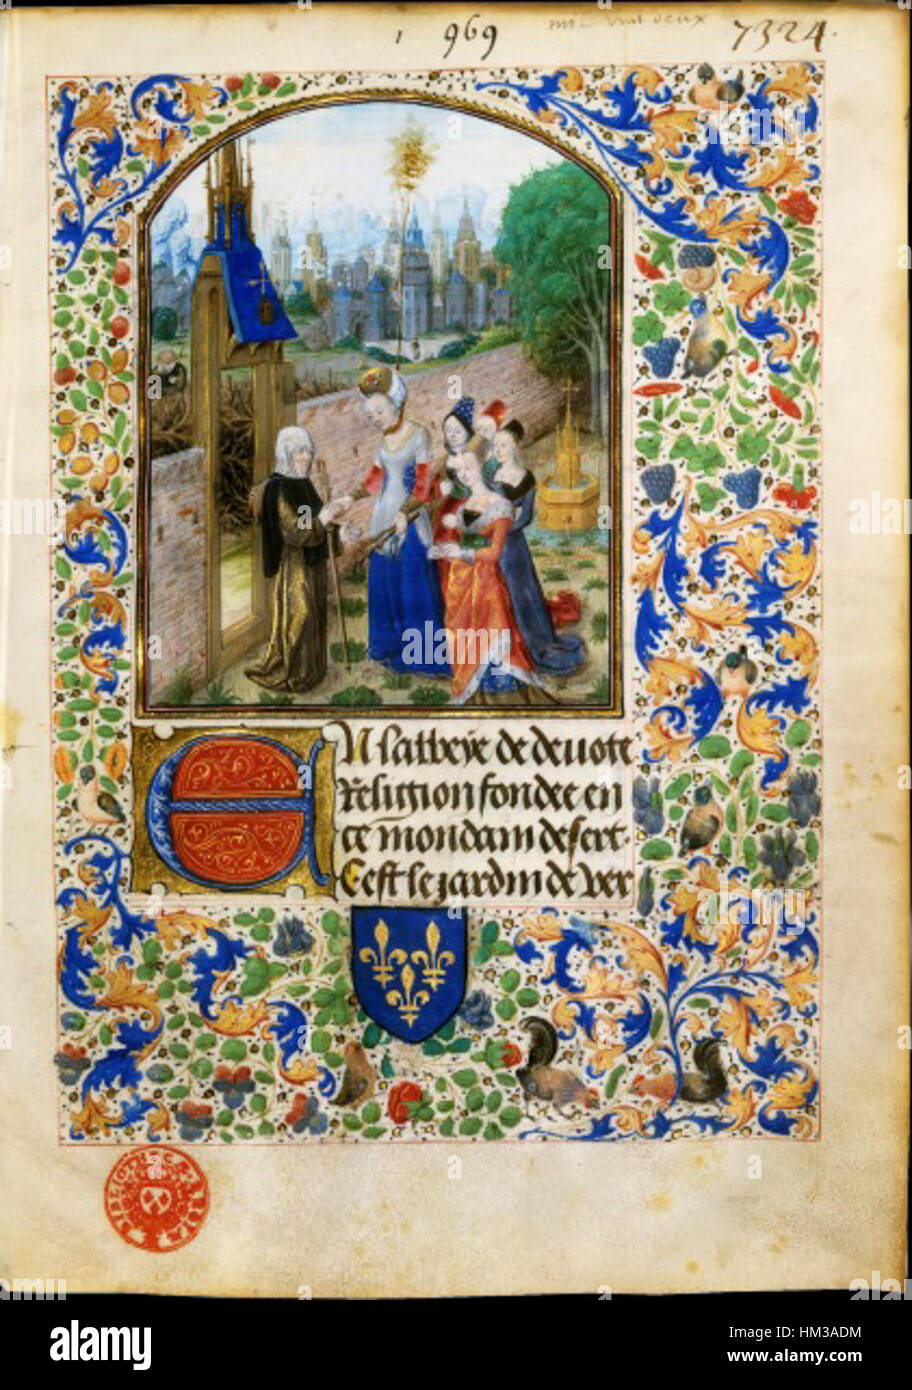 1 969 7324
En l'abbeye de deuote
Religion fondee en
ce mondain desert.
C'est le jardin de ver
a
alamy stock photo
HM3ADM
www.alamy.com